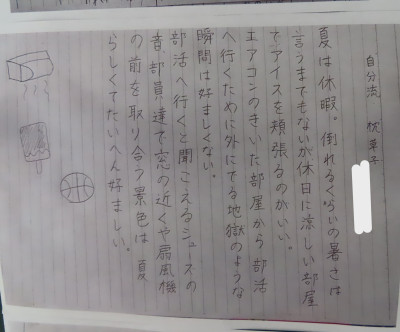 自分流 枕草子
夏は休暇。倒れるくらいの暑さは
言うまでもないが休日に涼しい部屋
でアイスを頬張るのがいい。
エアコンのきいた部屋から部活
へ行くために外にでる地獄のような
瞬間は好ましくない。
部活へ行くと聞こえるシューズの
音、部員達で窓の近くや扇風機
の前を取り合う景色は、夏
らしくてたいへん好ましい。